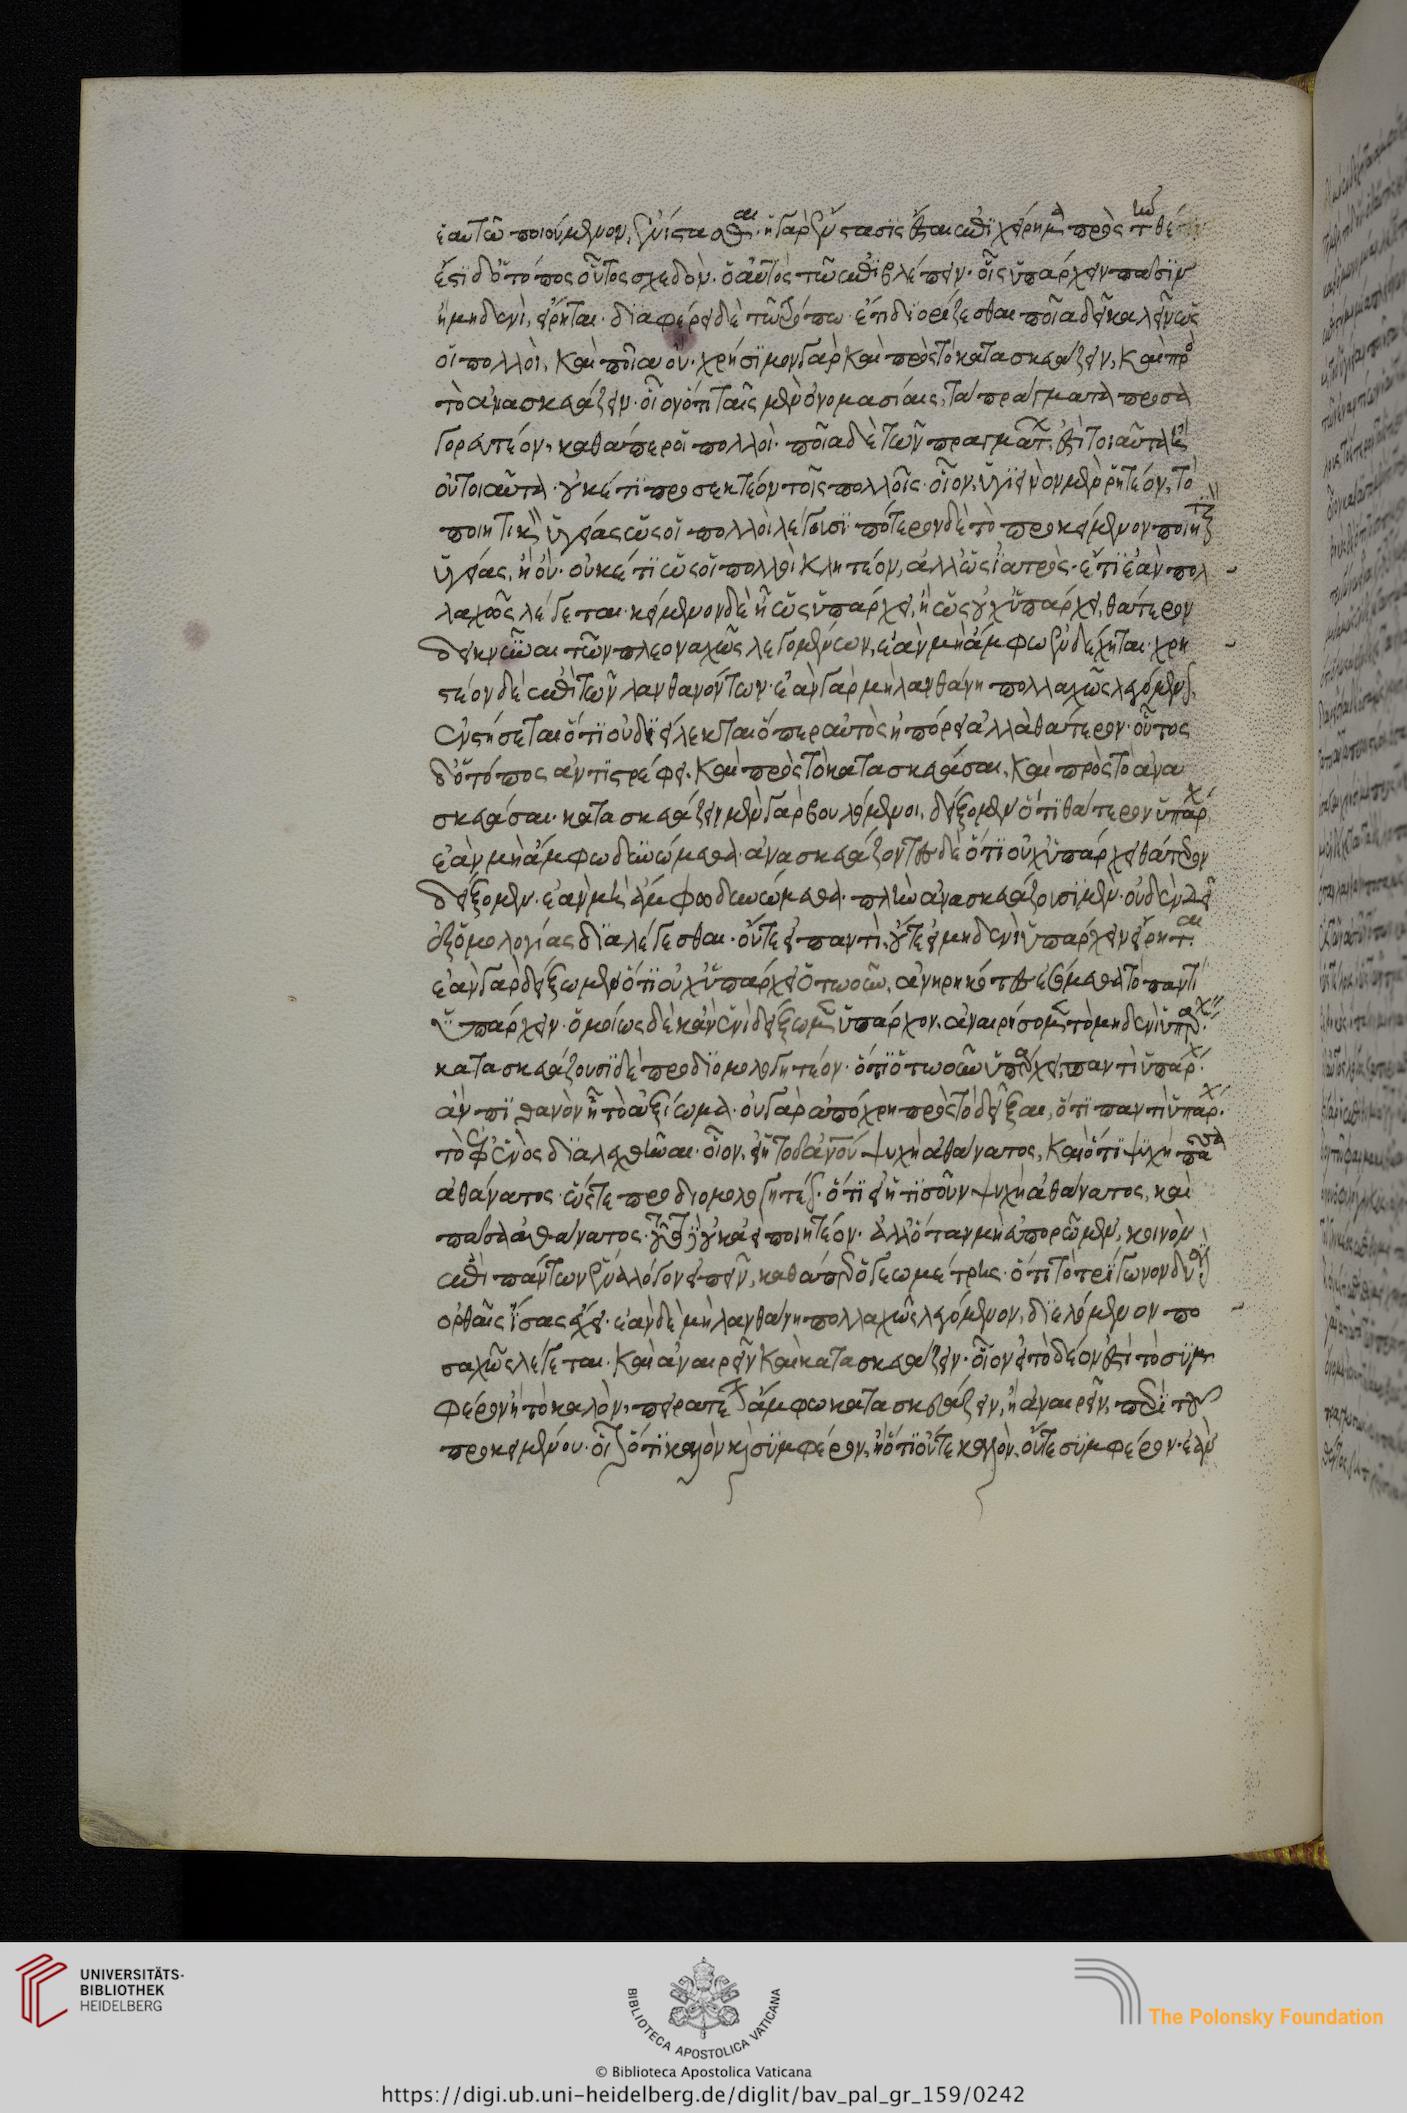 ἑαυτῶ ποιούμενον, ἐνίστασθαι. ἡ γὰρ ἔνστασις ἔσται ἐπιχείρημα πρὸς τὴν θέσιν
ἔστι δ' ὁ τόπος οὗτος σχεδὸν. ὁ αὐτὸς τῶ ἐπιβλέπειν. οἷς ὑπάρχειν πᾶσιν
ἢ μηδενὶ, εἴρηται. διαφέρει δὲ τῶ τρόπω. ἔτι διορίζεσθαι ποῖα δεῖ καλεῖν ὡς
οἱ πολλοὶ, καὶ ποῖα οὔ. χρήσιμον γὰρ καὶ πρὸς τὸ κατασκευάζειν, καὶ πρὸ
τὸ ἀνασκευάζειν. οἷον ὅτι ταῖς μὲν ὀνομασίαις, τὰ πράγματα προσα
γορευτέον, καθάπερ οἱ πολλοὶ. ποῖα δὲ τῶν πραγμάτων ἐστὶ τοιαῦτα ἢ
οὐ τοιαῦτα. οὐκέτι προσεκτέον τοῖς πολλοῖς. οἷον, ὑγιεινὸν μὲν ῥητέον, τὸ
ποιητικὸν ὑγείας ὡς οἱ πολλοὶ λέγουσι. πότερον δὲ τὸ προκείμενον ποιητικὸν
ὑγείας, ἢ οὔ. οὐκέτι ὡς οἱ πολλοὶ κλητέον, ἀλλ' ὡς ἰατρὸς. ἔτι ἐὰν πολ
λαχῶς λέγεται. κείμενον δὲ ἢ ὡς ὑπάρχει, ἢ ὡς οὐχ ὑπάρχει, θάτερον
δεικνύναι τῶν πλεοναχῶς λεγομένων, ἐὰν μὴ ἄμφω ἐνδέχηται. χρη
στέον δὲ ἐπὶ τῶν λανθανόντων. ἐὰν γὰρ μὴ λανθάνη πολλαχῶς λεγόμενον,
ἐνστήσεται ὅτι οὐ διείλεκται ὅπερ αὐτὸς ἠπόρει ἀλλὰ θάτερον. οὗτος
δ' ὁ τόπος ἀντιστρέφει. καὶ πρὸς τὸ κατασκευάσαι, καὶ πρὸς τὸ ἀνα
σκευάσαι. κατασκευάζειν μὲν γὰρ βουλόμενοι, δείξομεν ὅτι θάτερον ὑπάρχει,
ἐὰν μὴ ἄμφω δυνώμεθα. ἀνασκευάζοντες δὲ ὅτι οὐχ ὑπάρχει θάτερον
δείξομεν. ἐὰν μὴ ἄμφω δυνώμεθα. πλὴν ἀνασκευάζουσι μὲν. οὐδὲν δεῖ
ἐξ ὁμολογίας διαλέγεσθαι. οὔτε εἰ παντὶ, οὔτε εἰ μηδενὶ ὑπάρχειν εἴρηται
ἐὰν γὰρ δείξωμεν ὅτι οὐχ ὑπάρχει ὁτωοῦν, ἀνηρηκότες ἐσόμεθα τὸ παντὶ
ὑπάρχειν. ὁμοίως δὲ κἂν ἑνὶ δείξωμεν ὑπάρχον, ἀναιρήσομεν τὸ μηδενὶ ὑπάρχειν.
κατασκευάζουσι δὲ προδιομολογητέον. ὅτι ὁτωοῦν ὑπάρχει, παντὶ ὑπάρχει.
ἂν πιθανὸν ἦ τὸ ἀξίωμα. οὐ γὰρ ἀπόχρη πρὸς τὸ δεῖξαι, ὅτι παντὶ ὑπάρχει.
τὸ ἐφ' ἑνὸς διαλεχθῆναι. οἷον, εἰ ἡ τοῦ ἀνθρώπου ψυχὴ ἀθάνατος, καὶ ὅτι ψυχὴ πᾶσα
ἀθάνατος. ὥστε προδιομολογητέον. ὅτι εἰ ἡ τισοῦν ψυχὴ ἀθάνατος, καὶ
πᾶσα ἀθάνατος. τοῦτο δὲ οὐκ ἀεὶ ποιητέον. ἀλλ' ὅταν μὴ εὐπορῶμεν, κοινὸν
ἐπὶ πάντων ἕνα λόγον εἰπεῖν, καθάπερ ὁ γεωμέτρης. ὅτι τὸ τρίγωνον δυσὶν
ὀρθαῖς ἴσας ἔχει. ἐὰν δὲ μὴ λανθάνη πολλαχῶς λεγόμενον, διελόμενον πο
σαχῶς λέγεται. καὶ ἀναιρεῖν καὶ κατασκευάζειν. οἷον εἰ τὸ δέον ἐστὶ τὸ συμ
φέρον ἢ τὸ καλὸν, πειρατέον ἄμφω κατασκευάζειν, ἢ ἀναιρεῖν, περὶ τοῦ
προκειμένου. οἷον ὅτι καλὸν καὶ συμφέρον, ἢ ὅτι οὔτε καλὸν, οὔτε συμφέρον. ἐὰν
UNIVERSITÄTS-
BIBLIOTHEK
HEIDELBERG
BIBLIOTECA APOSTOLICA VATICANA
The Polonsky Foundation
© Biblioteca Apostolica Vaticana
https://digi.ub.uni-heidelberg.de/diglit/bav_pal_gr_159/0242